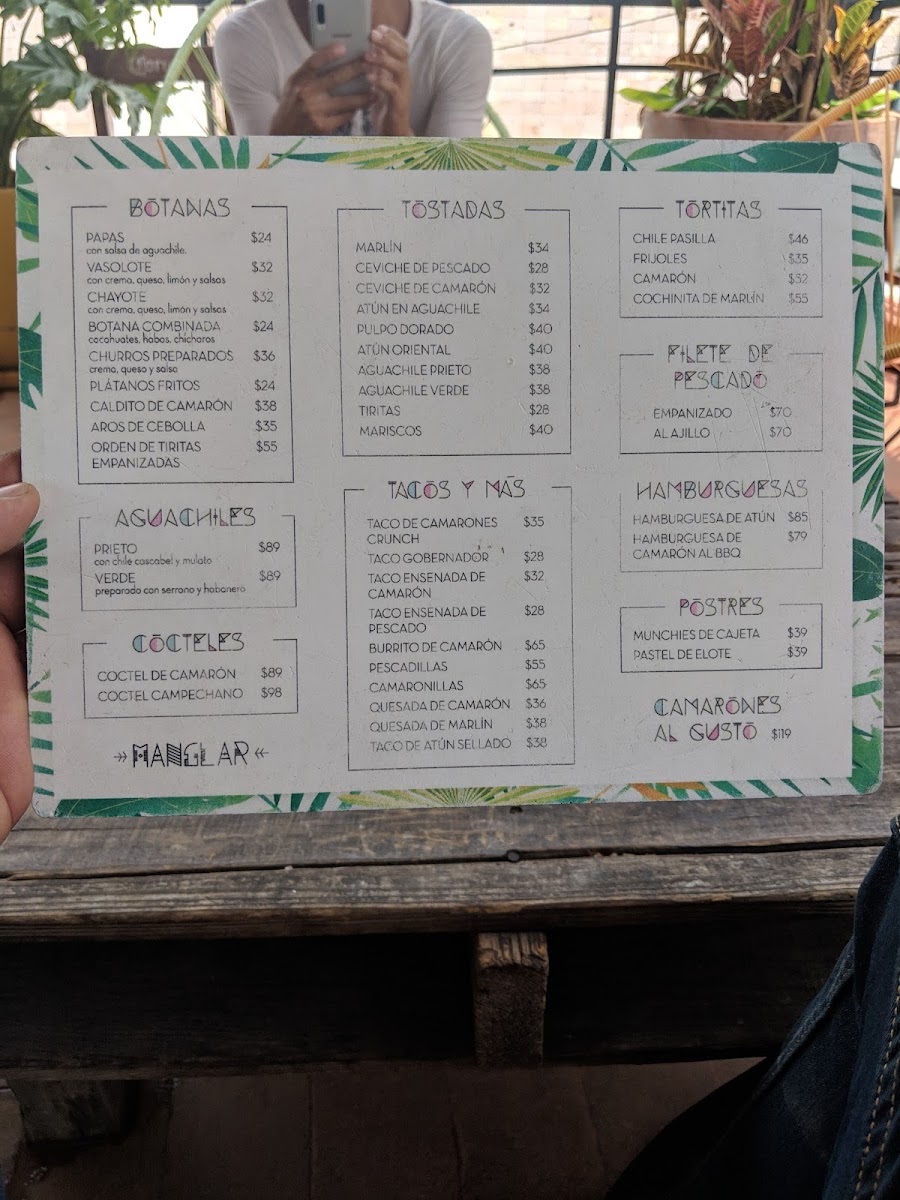 BOTANAS
PAPAS $24
con salsa de aguachile.
VASOLOTE $32
con crema, queso, limón y salsas
CHAYOTE $32
con crema, queso, limón y salsas
BOTANA COMBINADA $24
cacahuates, habas, chícharos
CHURROS PREPARADOS $36
crema, queso y salsa
PLÁTANOS FRITOS $24
CALDITO DE CAMARÓN $38
AROS DE CEBOLLA $35
ORDEN DE TIRITAS $55
EMPANIZADAS
AGUACHILES
PRIETO $89
con chile cascabel y mulato
VERDE $89
preparado con serrano y habanero
COCTELES
COCTEL DE CAMARÓN $89
COCTEL CAMPECHANO $98
MANGLAR
TOSTADAS
MARLÍN $34
CEVICHE DE PESCADO $28
CEVICHE DE CAMARÓN $32
ATÚN EN AGUACHILE $34
PULPO DORADO $40
ATÚN ORIENTAL $40
AGUACHILE PRIETO $38
AGUACHILE VERDE $38
TIRITAS $28
MARISCOS $40
TACOS Y MÁS
TACO DE CAMARONES $35
CRUNCH
TACO GOBERNADOR $28
TACO ENSENADA DE $32
CAMARÓN
TACO ENSENADA DE $28
PESCADO
BURRITO DE CAMARÓN $65
PESCADILLAS $55
CAMARONILLAS $65
QUESADA DE CAMARÓN $36
QUESADA DE MARLÍN $38
TACO DE ATÚN SELLADO $38
TORTITAS
CHILE PASILLA $46
FRIJOLES $35
CAMARÓN $32
COCHINITA DE MARLÍN $55
FILETE DE
PESCADO
EMPANIZADO $70
AL AJILLO $70
HAMBURGUESAS
HAMBURGUESA DE ATÚN $85
HAMBURGUESA DE $79
CAMARÓN AL BBQ
POSTRES
MUNCHIES DE CAJETA $39
PASTEL DE ELOTE $39
CAMARONES
AL GUSTO $119